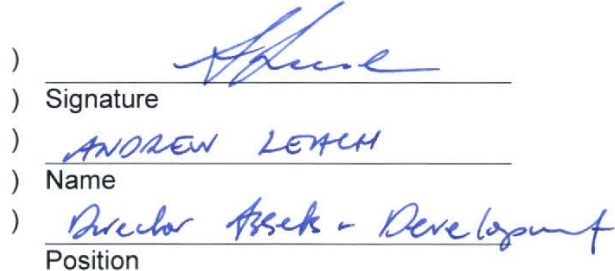 )
) Signature
) ANDREW LEACH
) Name
) Director Assets - Development
Position